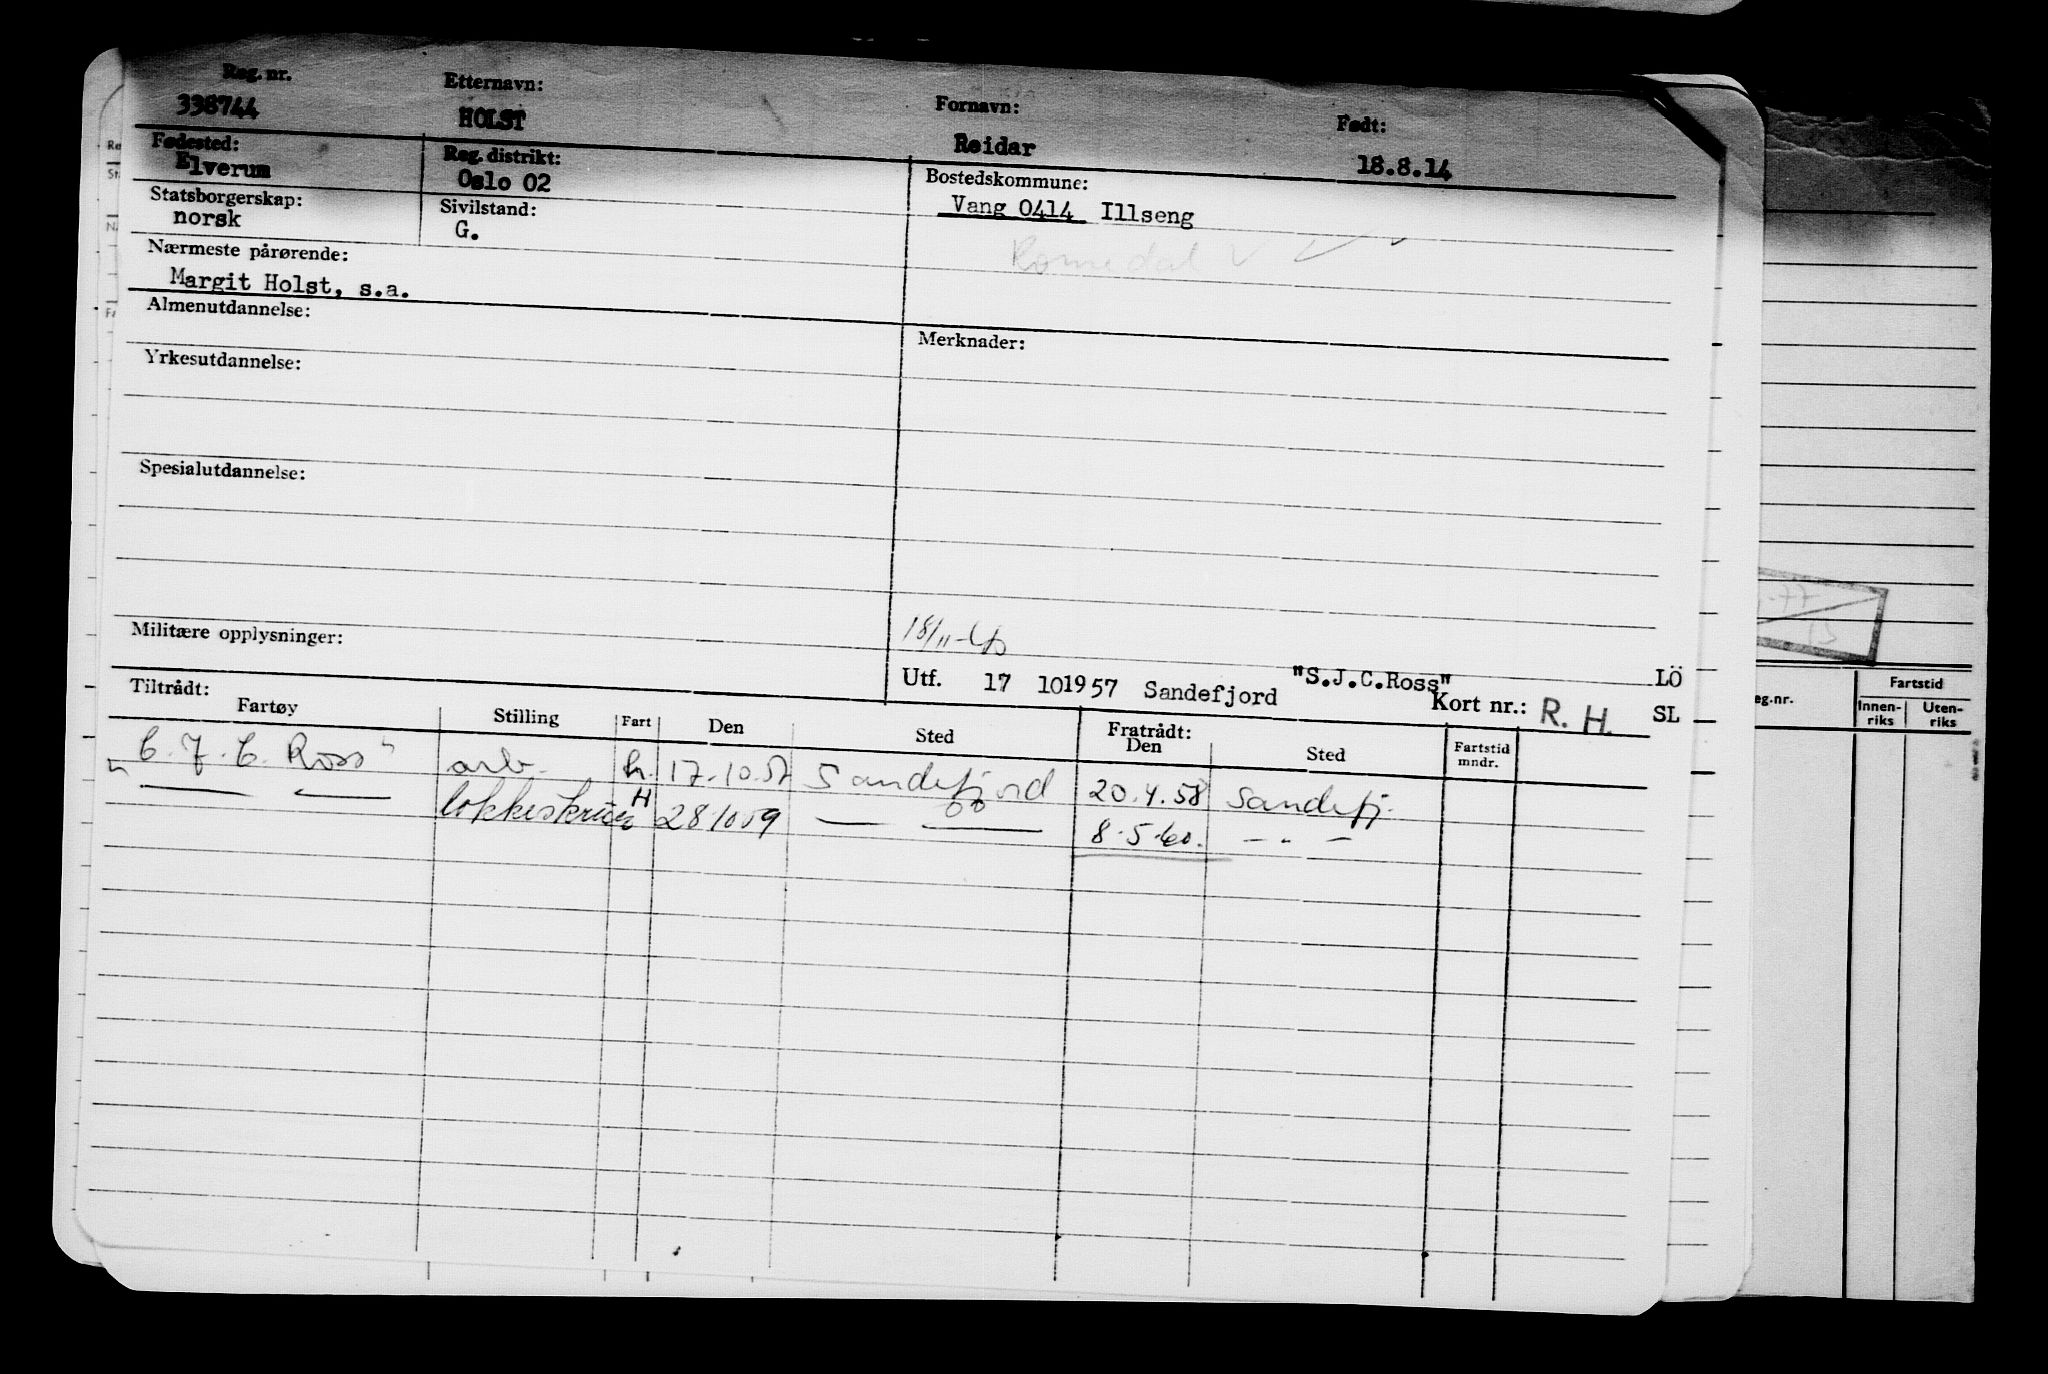 Reg. nr. Etternavn: Fornavn: Født:
338744 HOLST Reidar 18.8.14
Fødested: Reg. distrikt: Bostedskommune:
Elverum Oslo 02 Vang 0414 Illseng
Statsborgerskap: Sivilstand:
norsk G. Romedal
Nærmeste pårørende:
Margit Holst, s.a.
Almenutdannelse: Merknader:
Yrkesutdannelse:
Spesialutdannelse:
Militære opplysninger: 18/11-
Utf. 17 101957 Sandefjord "S.J.C.Ross" LÖ
Kort nr.: R. H. SL
Tiltrådt: Fratrådt:
Fartøy Stilling Fart Den Sted Den Sted Fartstid mndr.
C. J. C. Ross" arb. h. 17.10.57 Sandefjord 20.4.58 Sandefj.
" — — H 28 10 59 — — 8.5.60. — " —
eg.nr. Fartstid
Innen-riks Uten-riks